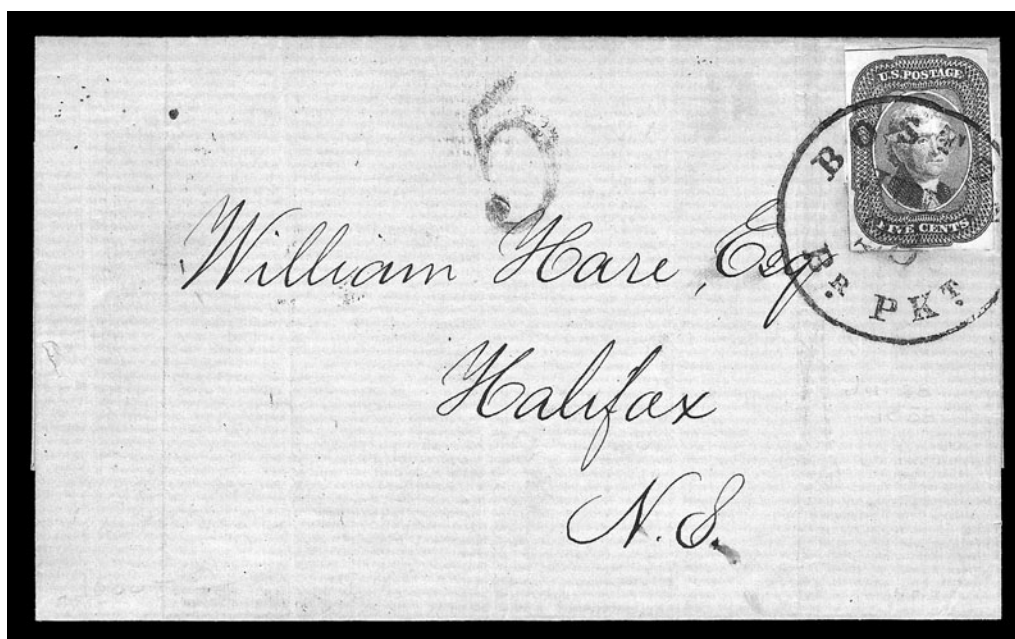 U.S. POSTAGE
FIVE CENTS
BR. PKT.
5
William Hare, Esq
Halifax
N.S.